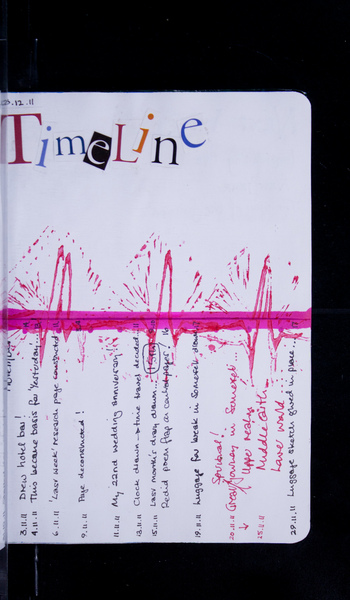 .12.11
TimeLine
3.11.11 Drew hotel bar!
4.11.11 This became basis for Yesterday....
6.11.11 'Last Week' research page completed!
9.11.11 Page deconstructed!
11.11.11 My 22nd wedding anniversary!
13.11.11 Clock drawn - time bands decided.
15.11.11 Last month's diary drawn....
Redid poem flap on
19.11.11 Luggage for break in Somerset drawn
Spiral!
20.11.11 Great Journey in Somerset...
Upper realm
Middle Earth
Lower world
29.11.11 Luggage sketch glued in place